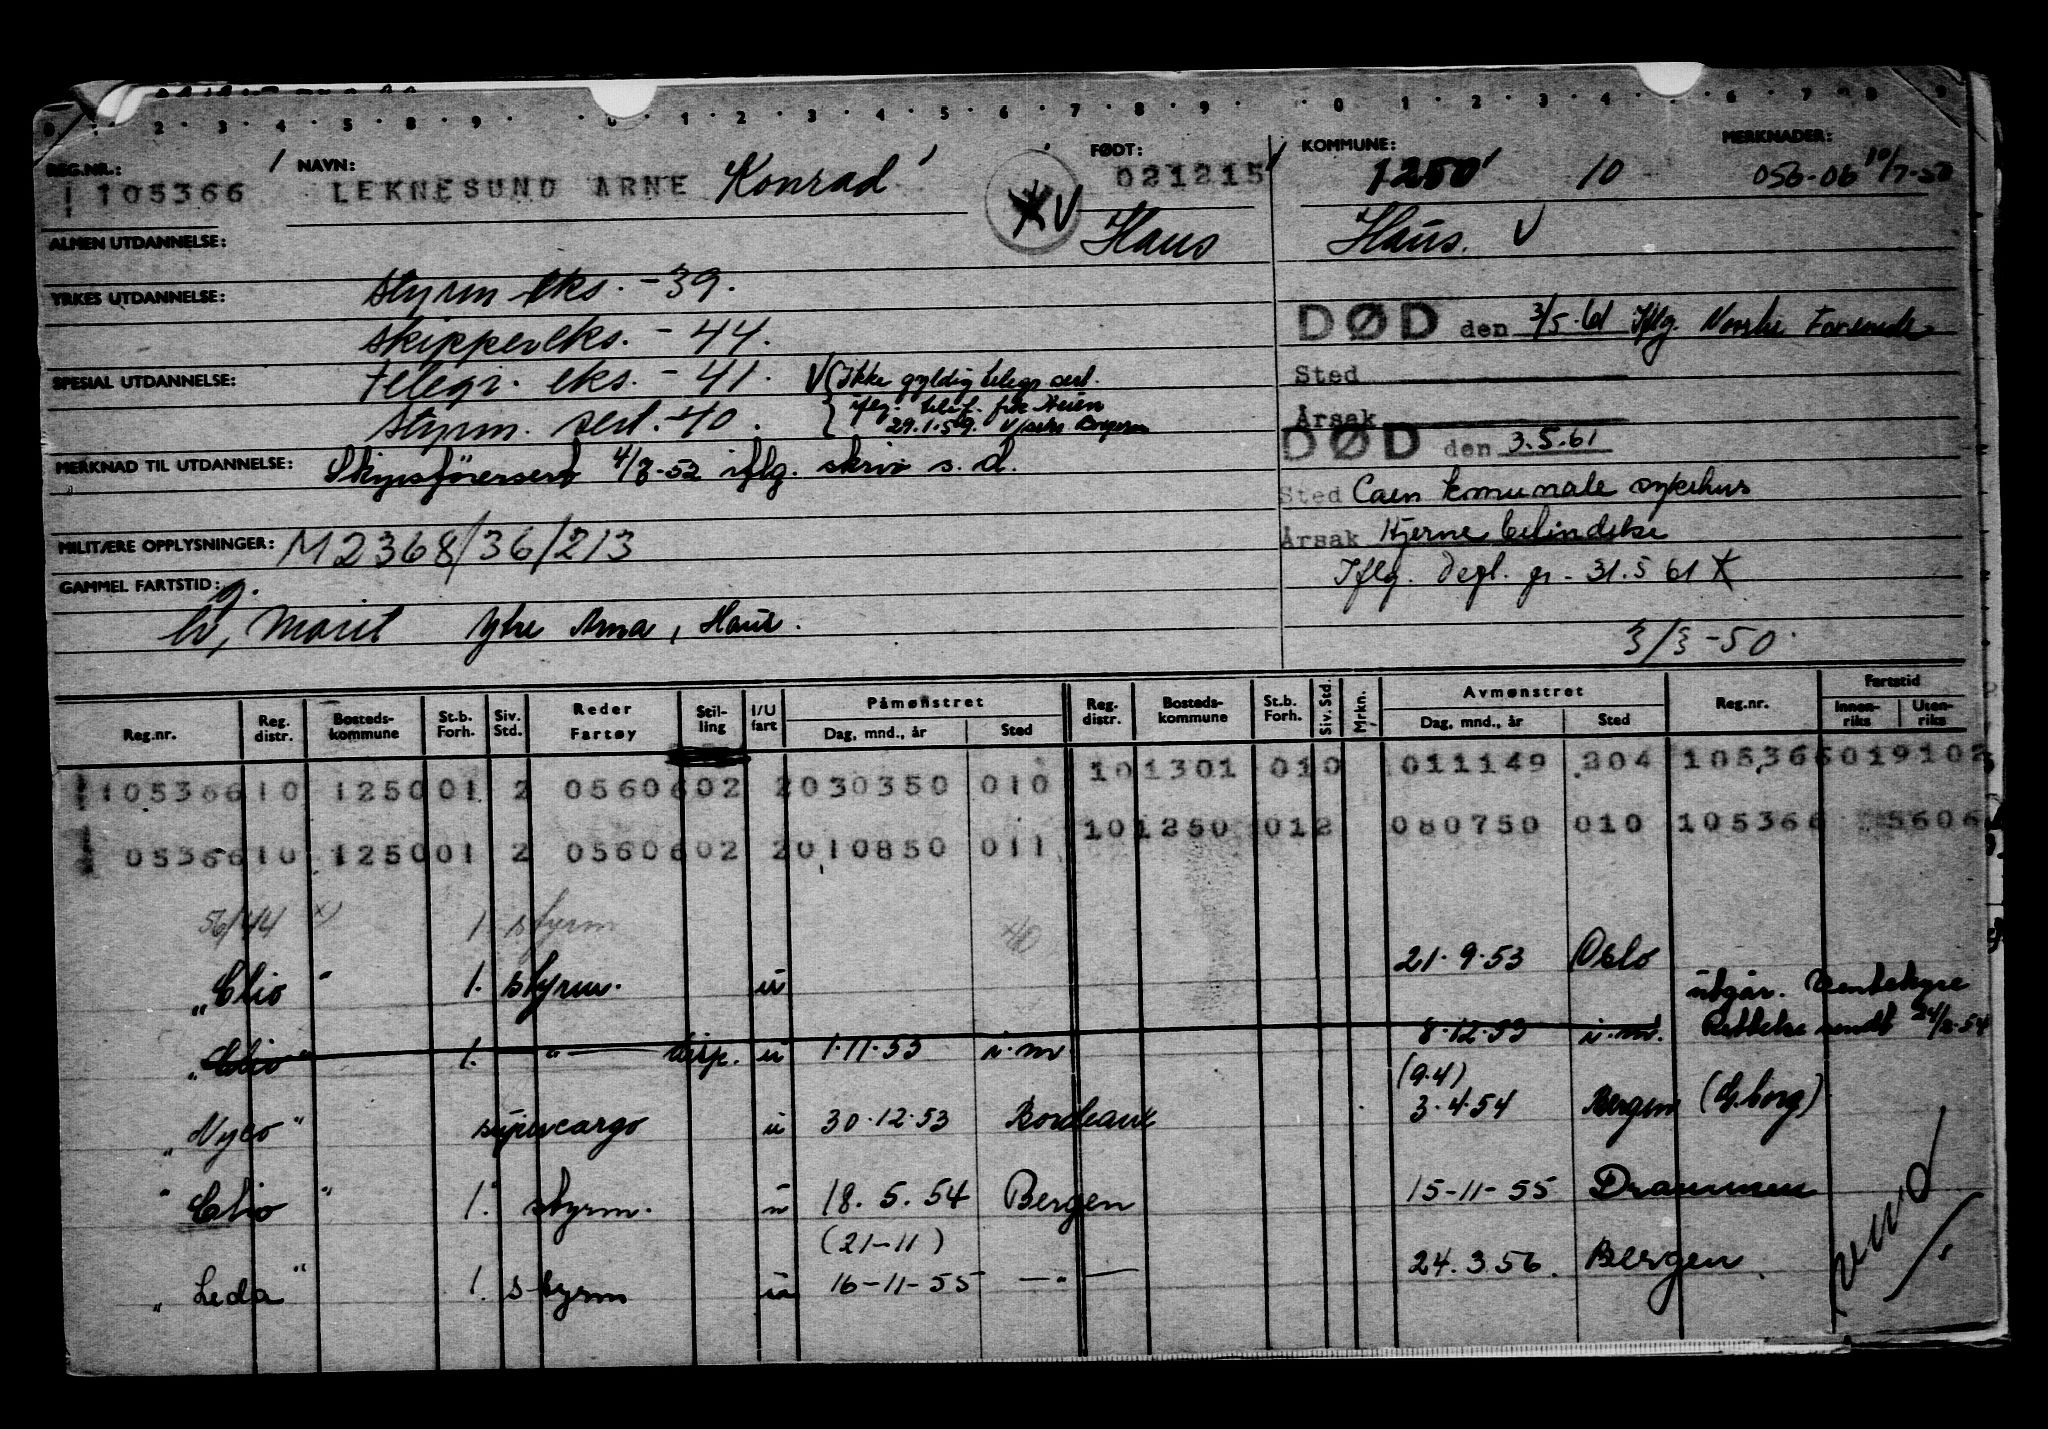 0 · 2 · 3 · 4 · 5 · 8 · 9 · 0 · 1 · 2 · 3 · 4 · 5 · 6 · 7 · 8 · 9 · 0 · 1 · 2 · 3 · 4 · 5 · 6 · 7 · 8 · 9
REG.NR.: NAVN: FØDT: KOMMUNE: MERKNADER:
105366 LEKNESUND ARNE Konrad 021215 1250 10 056-06 10/7-50
Haus Haus. V
ALMEN UTDANNELSE:
YRKES UTDANNELSE: styrm eks. -39.
skippereks. - 44.
DØD den 3/5.61 Iflg. Norske
SPESIAL UTDANNELSE: telegr. eks. - 41. V (Ikke gyldig telegr sert.
Sted
styrm. sert. -40. iflg. telef. frk Heien
29.1.59.
Årsak
DØD den 3.5.61
MERKNAD TIL UTDANNELSE: Skipsførersert 4/8-52 iflg. skriv s. d.
Sted Caen komunale sykehus
MILITÆRE OPPLYSNINGER: M2368/36/213
Årsak Hjerne
GAMMEL FARTSTID:
Iflg. Degl. gr. 31.5 61 X
g.
h, Marit Ytre Arna, Haus.
3/3-50.
Reg.nr. Reg. distr. Bosteds-kommune St.b. Forh. Siv. Std. Reder Fartøy Stil-ling I/U fart Påmønstret Dag, mnd., år Sted Reg. distr. Bosteds-kommune St.b. Forh. Siv. Std. Mrkn. Avmønstret Dag, mnd., år Sted Reg.nr. Fartstid Innen-riks Uten-riks
105366 10 1250 01 2 0560602 2030350 010 10 1301 010 011149 204 105366 019102
05366 10 1250 01 2 0560602 2010850 011 10 1250 012 080750 010 105366 5606
56/44 x) 1 styrm 40
"Clio" 1. styrm. u 21.9.53 Oslo
"Clio" 1. " disp. u 1.11.53 i.m 8.12.53 i.m. utgår. Rettelse sendt 24/2.54
"Nyco" supercargo u 30.12.53 Bordeaux (9.4) 3.4.54 Bergen (G.borg)
"Clio" 1. styrm. u 18.5.54 Bergen 15-11-55 Drammen
(21-11)
"Leda" 1. styrm u 16-11-55 —"— 24.3.56. Bergen